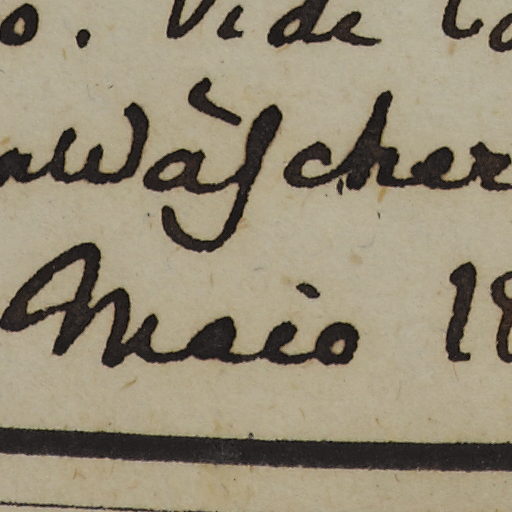 o. Vide
wäscher
Maio 18